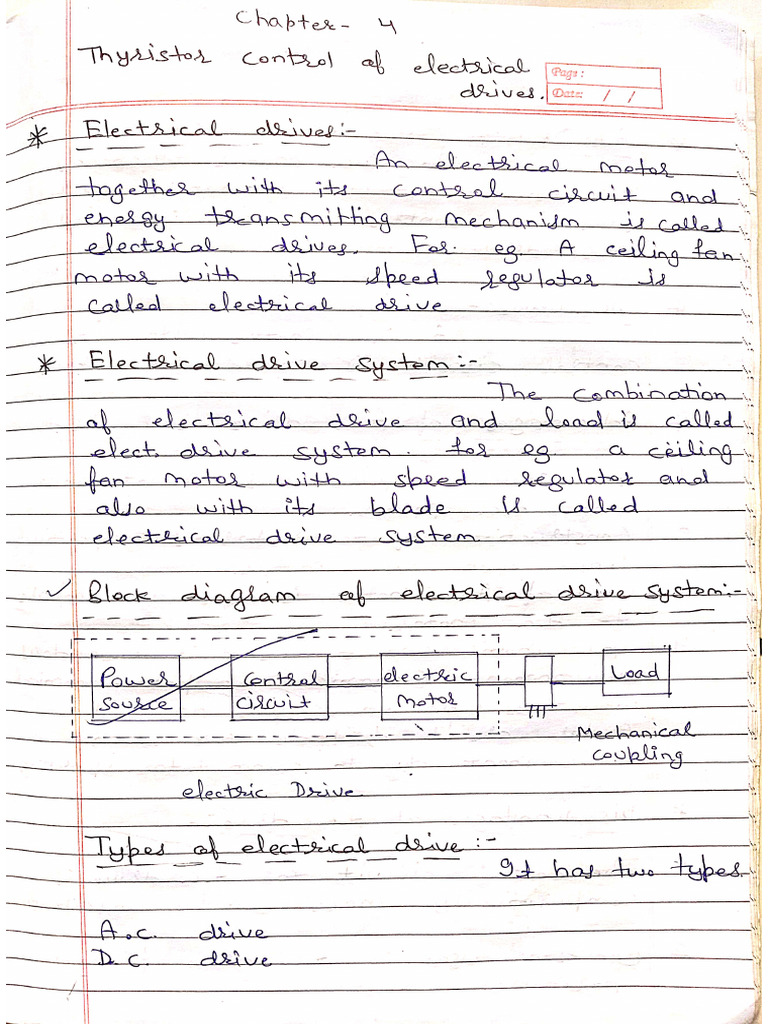 Chapter- 4
Thyristor control of electrical
drives.
Page:
Date: / /
* Electrical drives:-
An electrical motor
together with its control circuit and
energy transmitting mechanism is called
electrical drives. For. eg. A ceiling fan
motor with its speed regulator is
called electrical drive
* Electrical drive system:-
The combination
of electrical drive and load is called
elect. drive system. for eg a ceiling
fan motor with speed regulator and
also with its blade is called
electrical drive system
✓ Block diagram of electrical drive system:-
Power source
Control circuit
electric motor
Load
Mechanical
coupling
electric Drive
Types of electrical drive:-
It has two types.
A.C. drive
D.C. drive